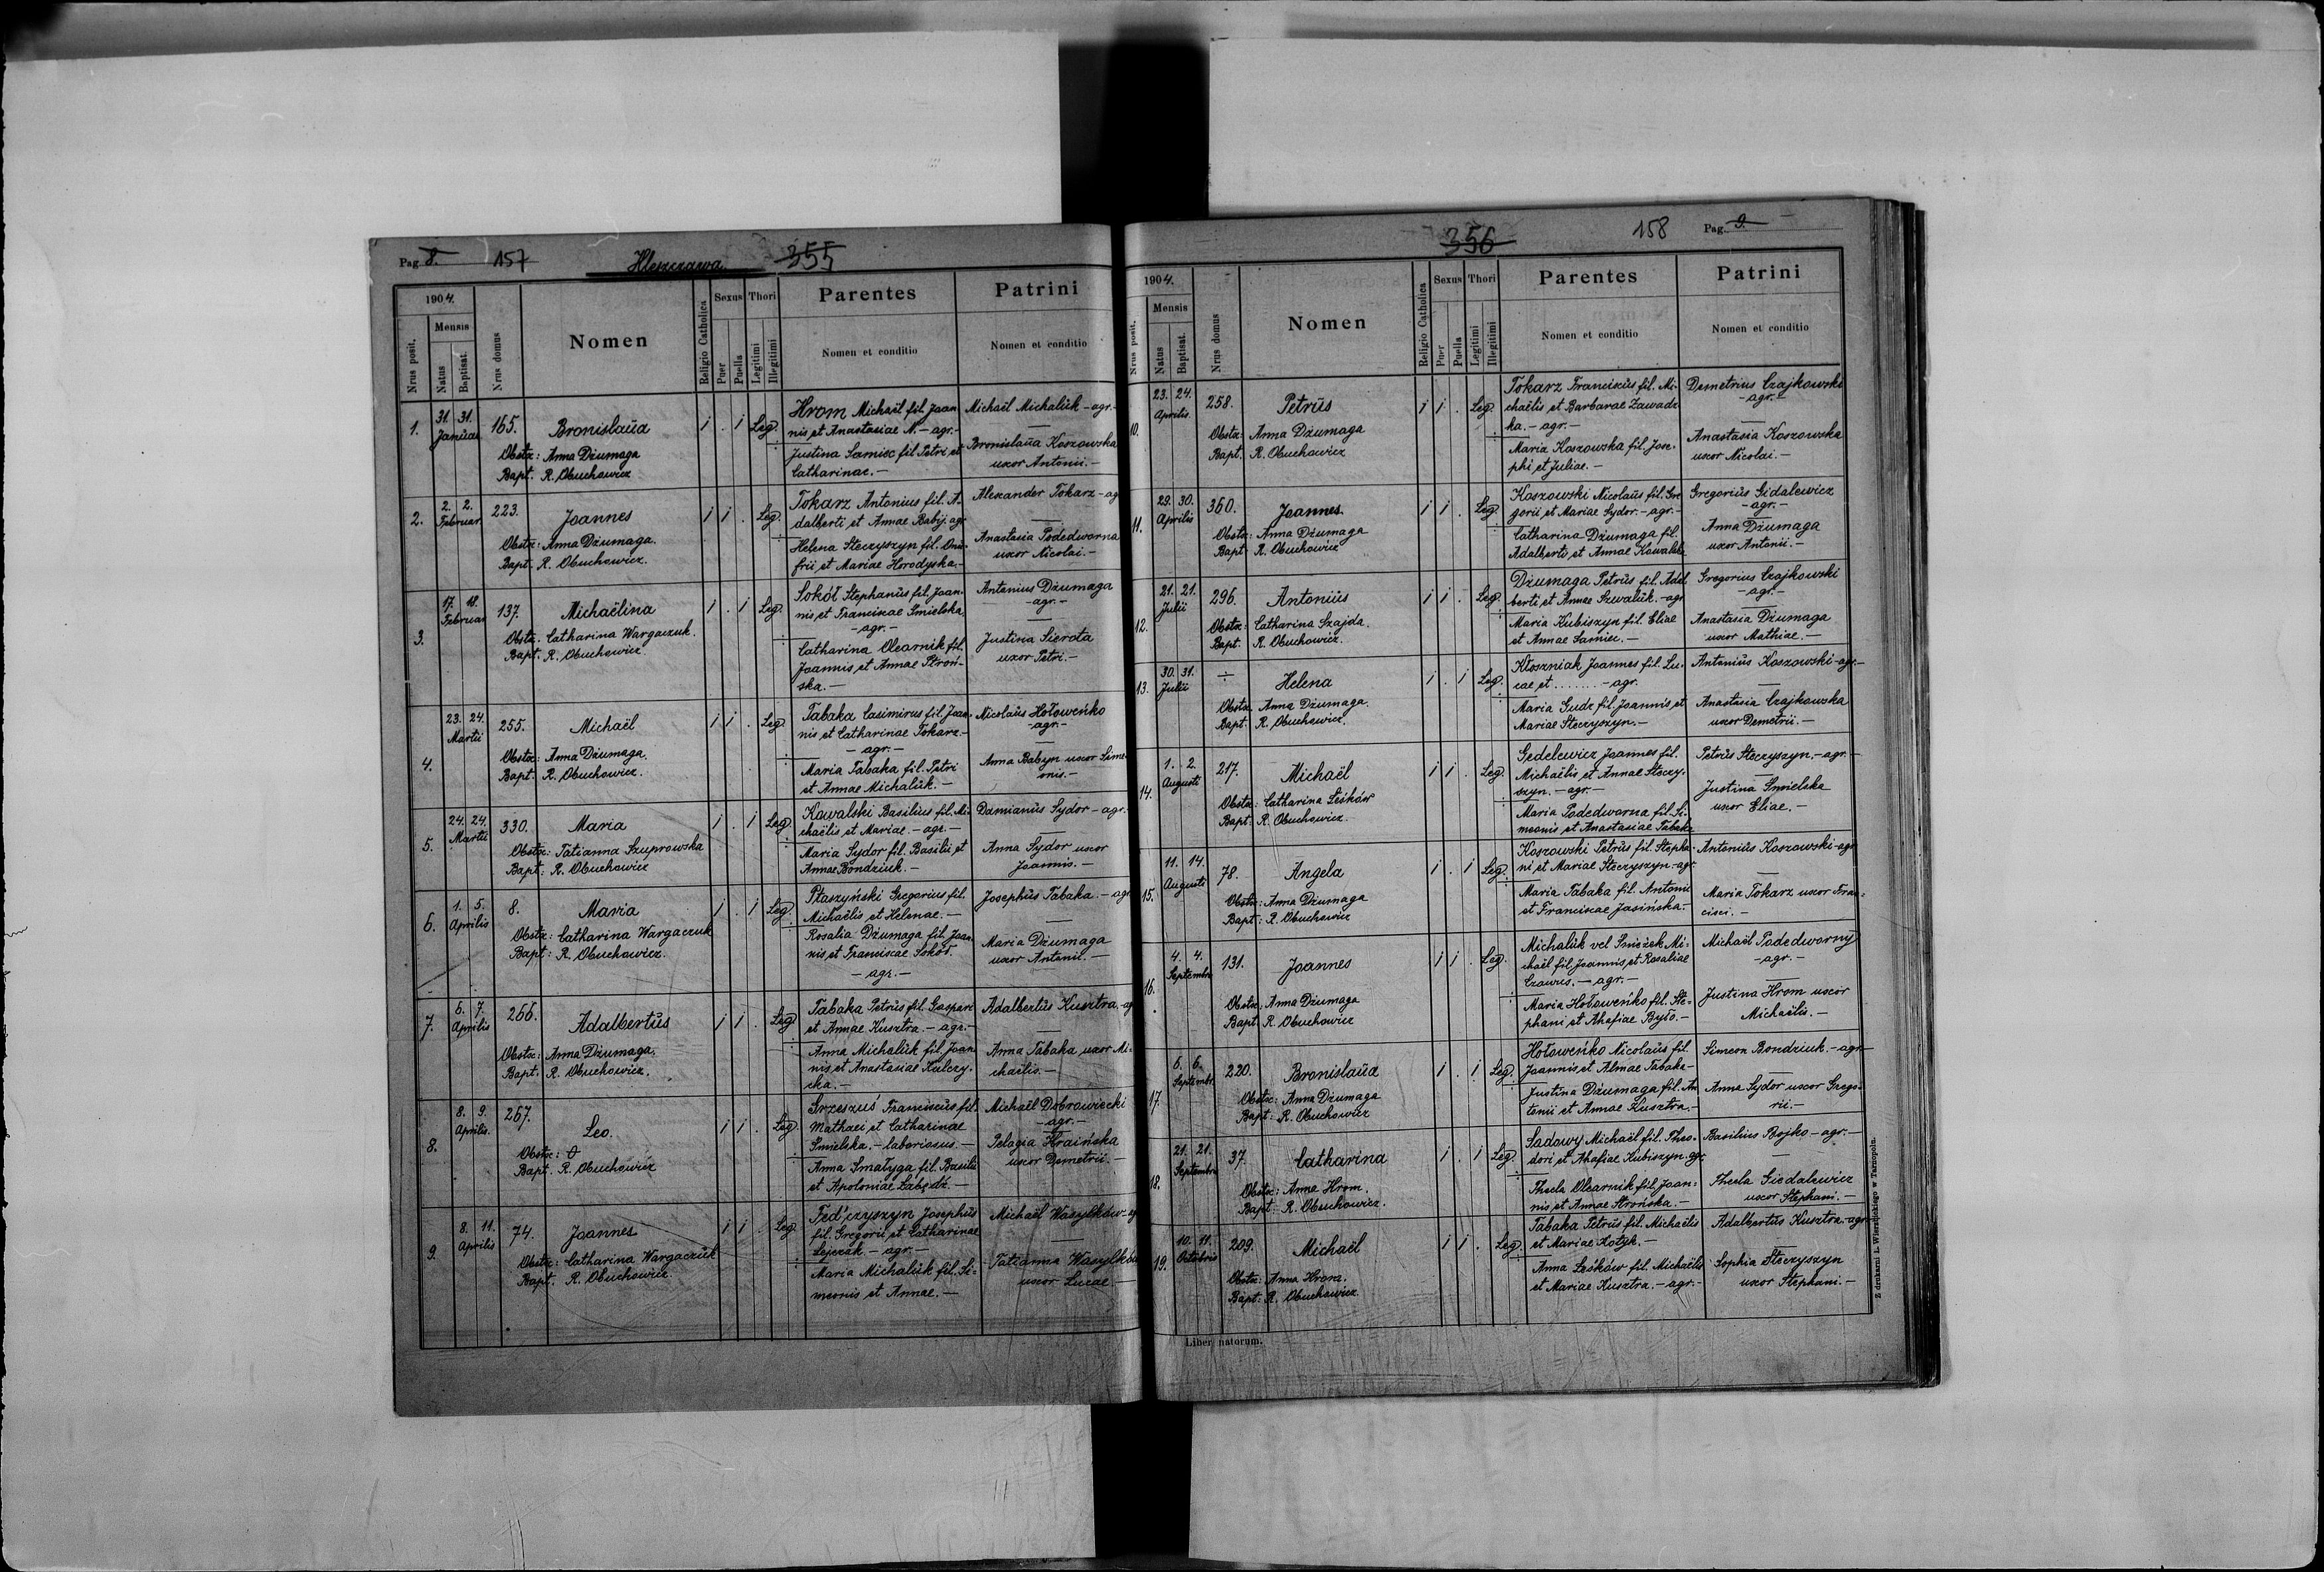 Pag. 8. 157 Hleszczawa 355
1904.
Nrus posit.
Mensis
Natus
Baptisat.
Nrus domus
Nomen
Religio Catholica
Sexus
Puer
Puella
Thori
Legitimi
Illegitimi
Parentes
Nomen et conditio
Patrini
Nomen et conditio
1. 31. 31. Januar 165. Bronislaŭa i . i Leg.
Obstx: Anna Dżumaga
Bapt. R. Obuchowicz
Hrom Michaël fil. Joan
nis et Anastasiae N. - agr. -
Justina Samiec fil. Petri et
Catharinae. -
Michaël Michalŭk - agr. -
Bronislaŭa Koszowska
uxor Antonii. -
2. 2. 2. Februar 223. Joannes i i . Leg.
Obstx: Anna Dżumaga.
Bapt. R. Obuchowicz.
Tokarz Antonius fil. A-
dalberti et Annae Babij. agr
Helena Steczyszyn fil. Onu-
frii et Mariae Horodyska. -
Alexander Tokarz - ag
Anastasia Podedworna
uxor Nicolai. -
3. 17. 18. Februar 137. Michaëlina i . i Leg.
Obstx. Catharina Wargaczuk.
Bapt. R. Obuchowicz.
Sokół Stephanŭs fil. Joan-
nis et Franciscae Smielska
- agr. -
Catharina Olearnik fil.
Joannis et Annae Stroń-
ska. -
Antonius Dżumaga
- agr. -
Justina Sierota
uxor Petri. -
4. 23. 24. Martii 255. Michaël i i . Leg.
Obstx: Anna Dżumaga.
Bapt. R. Obuchowicz.
Tabaka Casimirus fil. Joan-
nis et Catharinae Tokarz -
- agr. -
Maria Tabaka fil. Petri
et Annae Michalŭk. -
Nicolaŭs Hołoweńko
- agr. -
Anna Babyn uxor Sime-
onis. -
5. 24. 24. Martii 330. Maria i . i Leg.
Obstx: Tatianna Szuprowska
Bapt: R. Obuchowicz
Kowalski Basilius fil. Mi-
chaëlis et Mariae. - agr. -
Maria Sydor fil. Basilii et
Annae Bondziuk. -
Damianŭs Sydor - agr.
Anna Sydor uxor
Joannis. -
6. 1. 5. Aprilis 8. Maria i . i Leg.
Obstx: Catharina Wargaczuk
Bapt: R. Obuchowicz.
Ptaszyński Gregorius fil.
Michaëlis et Helenae. -
Rosalia Dżumaga fil. Joan-
nis et Franciscae Sokół.
- agr. -
Josephŭs Tabaka. - agr
Maria Dżumaga
uxor Antonii. -
7. 6. 7. Aprilis 266. Adalbertŭs i i . Leg
Obstx: Anna Dżumaga.
Bapt. R. Obuchowicz.
Tabaka Petrŭs fil. Gaspari
et Annae Kusztra. - agr. -
Anna Michalŭk fil. Joan
nis et Anastasiae Kulczy-
cka. -
Adalbertŭs Kusztra. ag
Anna Tabaka uxor Mi-
chaëlis. -
8. 8. 9. Aprilis. 267. Leo. i i . Leg
Obstx:
Bapt. R. Obuchowicz
Grzeszuś Franciscŭs fil.
Mathaei et Catharinae
Smielska. - laboriosus. -
Anna Smałyga fil. Basilii
et Apoloniae Łabędź. -
Michaël Dobrowiecki
- agr. -
Pelagia Hraińska
uxor Demetrii. -
9. 8. 11. Aprilis 74. Joannes i i . Leg
Obstx: Catharina Wargaczŭk
Bapt. R. Obuchowicz.
Fed'czyszyn Josephŭs
fil. Gregorii et Catharinae
Lejczak - agr. -
Maria Michalŭk fil. Si-
meonis et Annae. -
Michaël Wasylków - ag
Tatianna Wasylków
uxor Lucae -
356 158 Pag. 9.
1904.
Nrus posit.
Mensis
Natus
Baptisat.
Nrus domus
Nomen
Religio Catholica
Sexus
Puer
Puella
Thori
Legitimi
Illegitimi
Parentes
Nomen et conditio
Patrini
Nomen et conditio
10. 23. 24. Aprilis. 258. Petrŭs i i . Leg.
Obstx: Anna Dżumaga
Bapt. R. Obuchowicz
Tokarz Franciscŭs fil. Mi-
chaëlis et Barbarae Zawadz
ka. - agr. -
Maria Koszowska fil. Jose-
phi et Juliae. -
Demetrius Czajkowski
- agr. -
Anastasia Koszowska
uxor Nicolai. -
11. 29. 30. Aprilis 360. Joannes i i . Leg
Obstx: Anna Dżumaga
Bapt. R. Obuchowicz
Koszowski Nicolaŭs fil. Gre
gorii et Mariae Sydor. - agr. -
Catharina Dżumaga fil.
Adalberti et Annae Kowalska
Gregoriŭs Gidalewicz
- agr. -
Anna Dżumaga
uxor Antonii. -
12. 21. 21. Julii 296. Antoniŭs i i . Leg
Obstx: Catharina Szajda.
Bapt. R. Obuchowicz.
Dżumaga Petrŭs fil. Adal
berti et Annae Szwalŭk. - agr
Maria Kubiszyn fil. Eliae
et Annae Samiec. -
Gregorius Czajkowski
- agr. -
Anastasia Dżumaga
uxor Mathiae. -
13. 30. 31. Julii ÷ Helena i . i Leg.
Obstx. Anna Dżumaga.
Bapt. R. Obuchowicz.
Kłoszniak Joannes fil. Lu-
cae et ........ - agr.
Maria Gudz fil. Joannis et
Mariae Steczyszyn. -
Antoniŭs Koszowski - agr. -
Anastasia Czajkowska
uxor Demetrii. -
14. 1. 2. Augusti 217. Michaël i i . Leg.
Obstx: Catharina Leśków
Bapt: R. Obuchowicz.
Gedelewicz Joannes fil.
Michaëlis et Annae Steczy-
szyn. - agr. -
Maria Podedworna fil. Si-
meonis et Anastasiae Tabaka
Petrŭs Steczyszyn. - agr. -
Justina Smielska
uxor Eliae. -
15. 11. 14. Augusti 78. Angela i . i Leg.
Obstx: Anna Dżumaga
Bapt: R. Obuchowicz
Koszowski Petrŭs fil. Stepha-
ni et Mariae Steczyszyn - agr
Maria Tabaka fil. Antonii
et Franciscae Jasińska. -
Antoniŭs Koszowski - agr
Maria Tokarz uxor Fran-
cisci. -
16. 4. 4. Septembr 131. Joannes i i . Leg.
Obstx: Anna Dżumaga
Bapt. R. Obuchowicz
Michalŭk vel Smieżek Mi-
chaël fil. Joannis et Rosaliae
Czawus. - agr. -
Maria Hołoweńko fil. Ste-
phani et Ahafiae Było. -
Michaël Podedworny
- agr. -
Justina Hrom uxor
Michaëlis. -
17. 6. 6. Septembr. 220. Bronislaŭa i . i Leg
Obstx: Anna Dżumaga
Bapt: R. Obuchowicz
Hołoweńko Nicolaŭs fil.
Joannis et Annae Tabaka -
Justina Dżumaga fil. An
tonii et Annae Kusztra. -
Simeon Bondziuk. - agr -
Anna Sydor uxor Grego-
rii. -
18. 21. 21. Septembr 37. Catharina i . i Leg
Obstx: Anna Hrom.
Bapt. R. Obuchowicz.
Sadowy Michaël fil. Theo-
dori et Ahafiae Kubiszyn. agr
Thecla Olearnik fil. Joan-
nis et Annae Strońska. -
Basilius Bojko - agr. -
Thecla Giedalewicz
uxor Stephani. -
19. 10. 11. Octobris 209. Michaël i i . Leg.
Obstx: Anna Hrom.
Bapt. R. Obuchowicz.
Tabaka Petrŭs fil. Michaëlis
et Mariae Kotyk. -
Anna Leśków fil. Michaëlis
et Mariae Kusztra. - agr. -
Adalbertŭs Kusztra. - agr
Sophia Steczyszyn
uxor Stephani. -
Liber natorum.
Z drukarni L. Wierzbickiego w Tarnopolu.